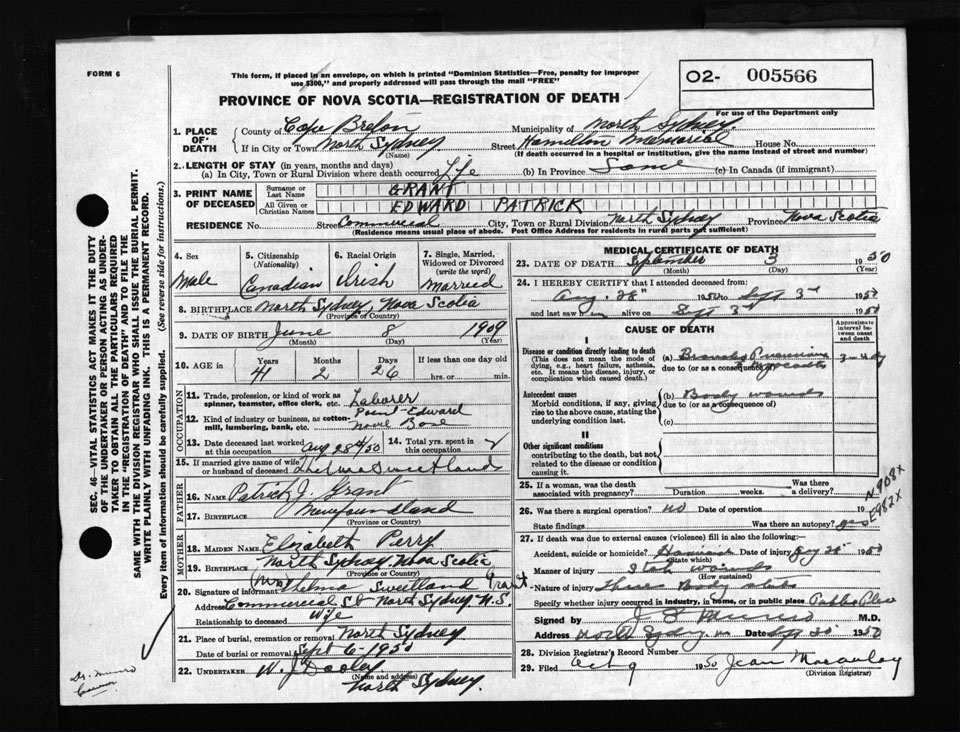 FORM 6
This form, if placed in an envelope, on which is printed "Dominion Statistics—Free, penalty for improper
use $300," and properly addressed will pass through the mail "FREE"
O2- 005566
PROVINCE OF NOVA SCOTIA—REGISTRATION OF DEATH
For use of the Department only
1. PLACE OF DEATH
County of Cape Breton Municipality of North Sydney
If in City or Town North Sydney (Name) Street Hamilton Memorial House No.
(If death occurred in a hospital or institution, give the name instead of street and number)
2. LENGTH OF STAY (in years, months and days)
(a) In City, Town or Rural Division where death occurred Life (b) In Province Same (c) In Canada (if immigrant)
3. PRINT NAME OF DECEASED
Surname or Last Name GRANT
All Given or Christian Names EDWARD PATRICK
RESIDENCE No. Street Commercial City, Town or Rural Division North Sydney Province Nova Scotia
(Residence means usual place of abode. Post Office Address for residents in rural parts not sufficient)
4. Sex Male
5. Citizenship (Nationality) Canadian
6. Racial Origin Irish
7. Single, Married, Widowed or Divorced (write the word) Married
8. BIRTHPLACE North Sydney, Nova Scotia
(Province or County)
9. DATE OF BIRTH June 8 1909
(Month) (Day) (Year)
10. AGE in Years Months Days If less than one day old
41 2 26 hrs. or min.
OCCUPATION
11. Trade, profession, or kind of work as spinner, teamster, office clerk, etc. Laborer
12. Kind of industry or business, as cotton-mill, lumbering, bank, etc. Point Edward Naval Base
13. Date deceased last worked at this occupation Aug 28th/50
14. Total yrs. spent in this occupation
15. If married give name of wife or husband of deceased Thelma Sweetland
FATHER
16. Name Patrick J. Grant
17. BIRTHPLACE Newfoundland
(Province or Country)
MOTHER
18. MAIDEN NAME Elizabeth Perry
19. BIRTHPLACE North Sydney, Nova Scotia
(Province or Country)
20. Signature of informant (Mrs) Thelma Sweetland Grant
Address Commercial St North Sydney N.S.
Relationship to deceased Wife
21. Place of burial, cremation or removal North Sydney
Date of burial or removal Sept 6-1950
22. UNDERTAKER W. J. Dooley
(Name and address)
North Sydney.
MEDICAL CERTIFICATE OF DEATH
23. DATE OF DEATH September 3 1950
(Month) (Day) (Year)
24. I HEREBY CERTIFY that I attended deceased from
Aug. 28" 1950 to Sept 3rd 1950
and last saw alive on Sept 3rd 1950
CAUSE OF DEATH
Approximate interval between onset and death
I
Disease or condition directly leading to death
This does not mean the mode of dying, e.g., heart failure, asthenia, etc. It means the disease, injury, or complication which caused death.
(a) Broncho Pneumonia 3-4 dy
due to (or as a consequence of)
Antecedent causes
Morbid conditions, if any, giving rise to the above cause, stating the underlying condition last.
(b) Body wounds
due to (or as a consequence of)
(c)
II
Other significant conditions
contributing to the death, but not related to the disease or condition causing it.
25. If a woman, was the death associated with pregnancy? Duration weeks. Was there a delivery?
N908X
E982X
26. Was there a surgical operation? no Date of operation 19
State findings Was there an autopsy? yes
27. If death was due to external causes (violence) fill in also the following:—
Accident, suicide or homicide? Homicide Date of injury Aug 28 1950
(State which)
Manner of injury Stab wounds
(How sustained)
Nature of injury Three Body stabs
Specify whether injury occurred in industry, in home, or in public place Public Place
Signed by M.D.
Address North Sydney Date Sept 30 1950
28. Division Registrar's Record Number
29. Filed Oct 9 1950 Jean Macaulay
(Division Registrar)
SEC. 46—VITAL STATISTICS ACT MAKES IT THE DUTY
OF THE UNDERTAKER OR PERSON ACTING AS UNDER-
TAKER TO OBTAIN ALL THE PARTICULARS REQUIRED
IN THE "REGISTRATION OF DEATH" AND TO FILE THE
SAME WITH THE DIVISION REGISTRAR WHO SHALL ISSUE THE BURIAL PERMIT.
WRITE PLAINLY WITH UNFADING INK. THIS IS A PERMANENT RECORD.
Every item of information should be carefully supplied. (See reverse side for instructions.)
Dr. Munro
Coroner